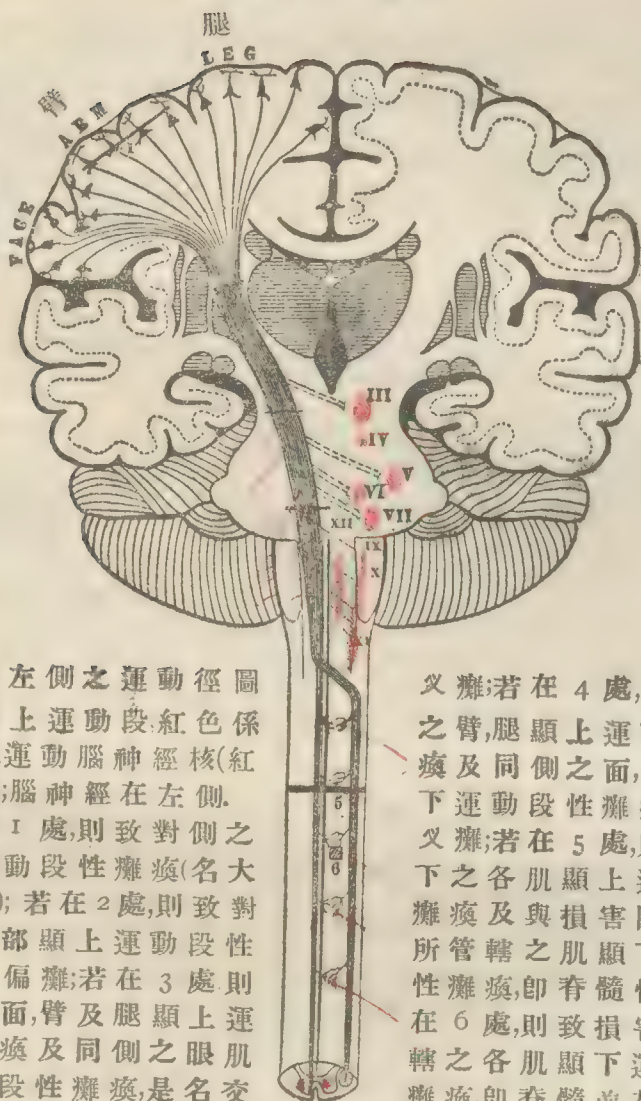 腿
LEG
臂
ARM
FACE
III
IV
V
VI
VII
XII
IX
X
XI
5
6
左側之運動徑圖
上運動段.紅色係
運動腦神經核(紅
;腦神經在左側.
1處,則致對側之
動段性癱瘓(名大
);若在2處,則致對
部顯上運動段性
偏癱;若在3處則
面,臂及腿顯上運
瘓及同側之眼肌
段性癱瘓,是名交
叉癱;若在4處,
之臂,腿顯上運
瘓及同側之面,
下運動段性癱
叉癱;若在5處,
下之各肌顯上
癱瘓及與損害
所管轄之肌顯下
性癱瘓,卽脊髓性
在6處,則致損害
轄之各肌顯下運
癱瘓卽脊髓